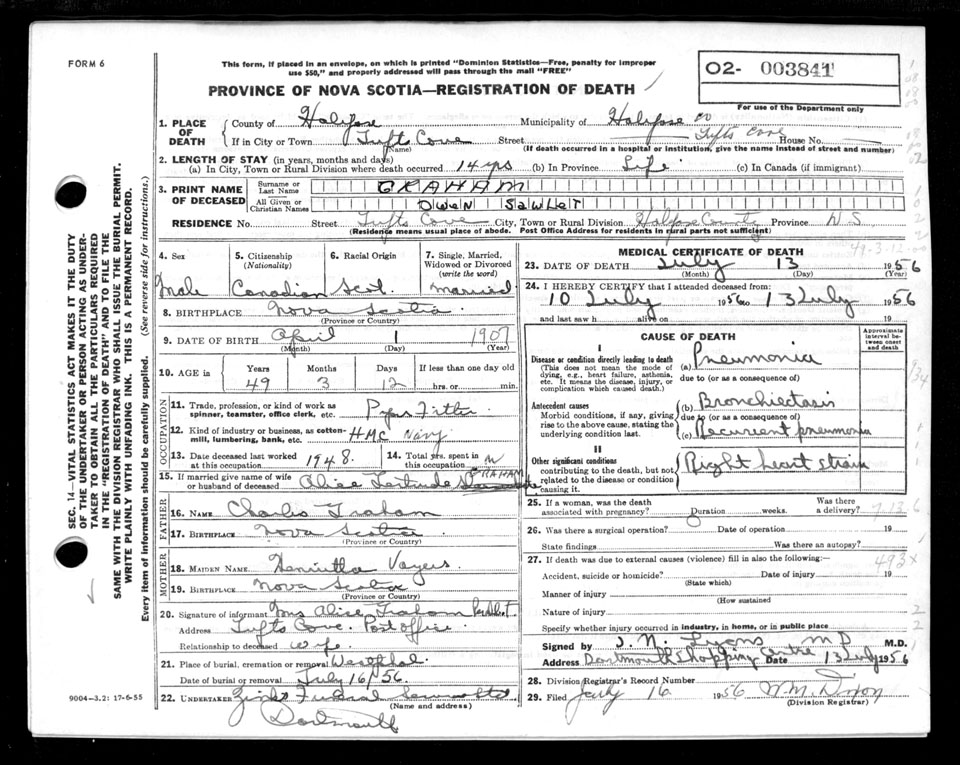 FORM 6
This form, if placed in an envelope, on which is printed "Dominion Statistics—Free, penalty for improper
use $50," and properly addressed will pass through the mail "FREE"
O2- 003841
For use of the Department only
PROVINCE OF NOVA SCOTIA—REGISTRATION OF DEATH
1. PLACE OF DEATH
County of Halifax Municipality of Halifax Co
If in City or Town Tufts Cove Street Tufts Cove House No.
(Name) (If death occurred in a hospital or institution, give the name instead of street and number)
2. LENGTH OF STAY (in years, months and days)
(a) In City, Town or Rural Division where death occurred 14 yrs (b) In Province Life (c) In Canada (if immigrant)
3. PRINT NAME OF DECEASED
Surname or Last Name GRAHAM
All Given or Christian Names OWEN SAWLET
RESIDENCE No. Street Tufts Cove City, Town or Rural Division Halifax County Province N S
(Residence means usual place of abode. Post Office Address for residents in rural parts not sufficient)
SEC. 14—VITAL STATISTICS ACT MAKES IT THE DUTY
OF THE UNDERTAKER OR PERSON ACTING AS UNDER-
TAKER TO OBTAIN ALL THE PARTICULARS REQUIRED
IN THE "REGISTRATION OF DEATH" AND TO FILE THE
SAME WITH THE DIVISION REGISTRAR WHO SHALL ISSUE THE BURIAL PERMIT.
WRITE PLAINLY WITH UNFADING INK. THIS IS A PERMANENT RECORD.
Every item of information should be carefully supplied. (See reverse side for instructions.)
4. Sex
Male
5. Citizenship
(Nationality)
Canadian
6. Racial Origin
Scot.
7. Single, Married,
Widowed or Divorced
(write the word)
married
8. BIRTHPLACE Nova Scotia
(Province or Country)
9. DATE OF BIRTH April 1 1907
(Month) (Day) (Year)
10. AGE in
Years Months Days If less than one day old
49 3 12 hrs. or min.
OCCUPATION
11. Trade, profession, or kind of work as
spinner, teamster, office clerk, etc. Pipe Fitter
12. Kind of industry or business, as cotton-
mill, lumbering, bank, etc. HMC Navy
13. Date deceased last worked
at this occupation 1948.
14. Total yrs. spent in
this occupation
15. If married give name of wife
or husband of deceased Alice Gertrude GRAHAM
FATHER
16. NAME Charles Graham
17. BIRTHPLACE Nova Scotia
(Province or Country)
MOTHER
18. MAIDEN NAME Henrietta
19. BIRTHPLACE Nova Scotia
(Province or Country)
20. Signature of informant Mrs Alice Graham
Address Tufts Cove. Post office
Relationship to deceased wife
21. Place of burial, cremation or removal Westphal
Date of burial or removal July 16/56
22. UNDERTAKER Funeral
(Name and address)
Dartmouth
9004—3.2: 17-6-55
MEDICAL CERTIFICATE OF DEATH
23. DATE OF DEATH July 13 1956
(Month) (Day) (Year)
24. I HEREBY CERTIFY that I attended deceased from:
10 July 1956 to 13 July 1956
and last saw h alive on 19
CAUSE OF DEATH
Approximate
interval be-
tween onset
and death
I
Disease or condition directly leading to death
(This does not mean the mode of
dying, e.g., heart failure, asthenia,
etc. It means the disease, injury, or
complication which caused death.)
(a) Pneumonia
due to (or as a consequence of)
Antecedent causes
Morbid conditions, if any, giving
rise to the above cause, stating the
underlying condition last.
(b) Bronchiectasis
due to (or as a consequence of)
(c) Recurrent pneumonia
II
Other significant conditions
contributing to the death, but not
related to the disease or condition
causing it.
Right heart strain
25. If a woman, was the death
associated with pregnancy? Duration weeks. Was there a delivery?
26. Was there a surgical operation? Date of operation 19
State findings Was there an autopsy?
27. If death was due to external causes (violence) fill in also the following:— 493 x
Accident, suicide or homicide? Date of injury 19
(State which)
Manner of injury
(How sustained
Nature of injury
Specify whether injury occurred in industry, in home, or in public place
Signed by J. N. Lyons MD M.D.
Address Dartmouth Shopping Centre Date 13 July 1956
28. Division Registrar's Record Number
29. Filed July 16 1956 W. M. Dixon
(Division Registrar)